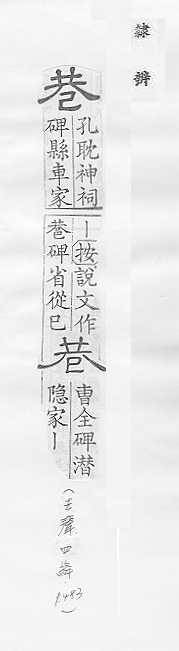 隸辨
巷
孔耽神祠
碑縣車家
｜按說文作
巷碑省從巳
巷
曹全碑潜
隐家｜
(去聲.四絳 P483)